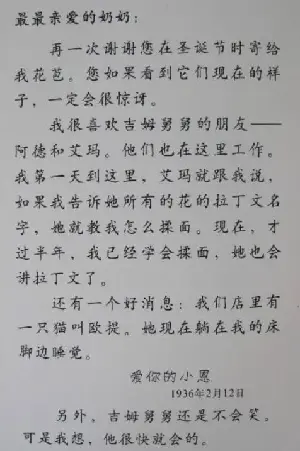 最最亲爱的奶奶：
再一次谢谢您在圣诞节时寄给
我花苞。您如果看到它们现在的样
子，一定会很惊讶。
我很喜欢吉姆舅舅的朋友——
阿德和艾玛。他们也在这里工作。
我第一天到这里，艾玛就跟我说，
如果我告诉她所有的花的拉丁文名
字，她就教我怎么揉面。现在，才
过半年，我已经学会揉面，她也会
讲拉丁文了。
还有一个好消息：我们店里有
一只猫叫欧提。她现在躺在我的床
脚边睡觉。
爱你的小恩
1936年2月12日
另外，吉姆舅舅还是不会笑。
可是我想，他很快就会的。